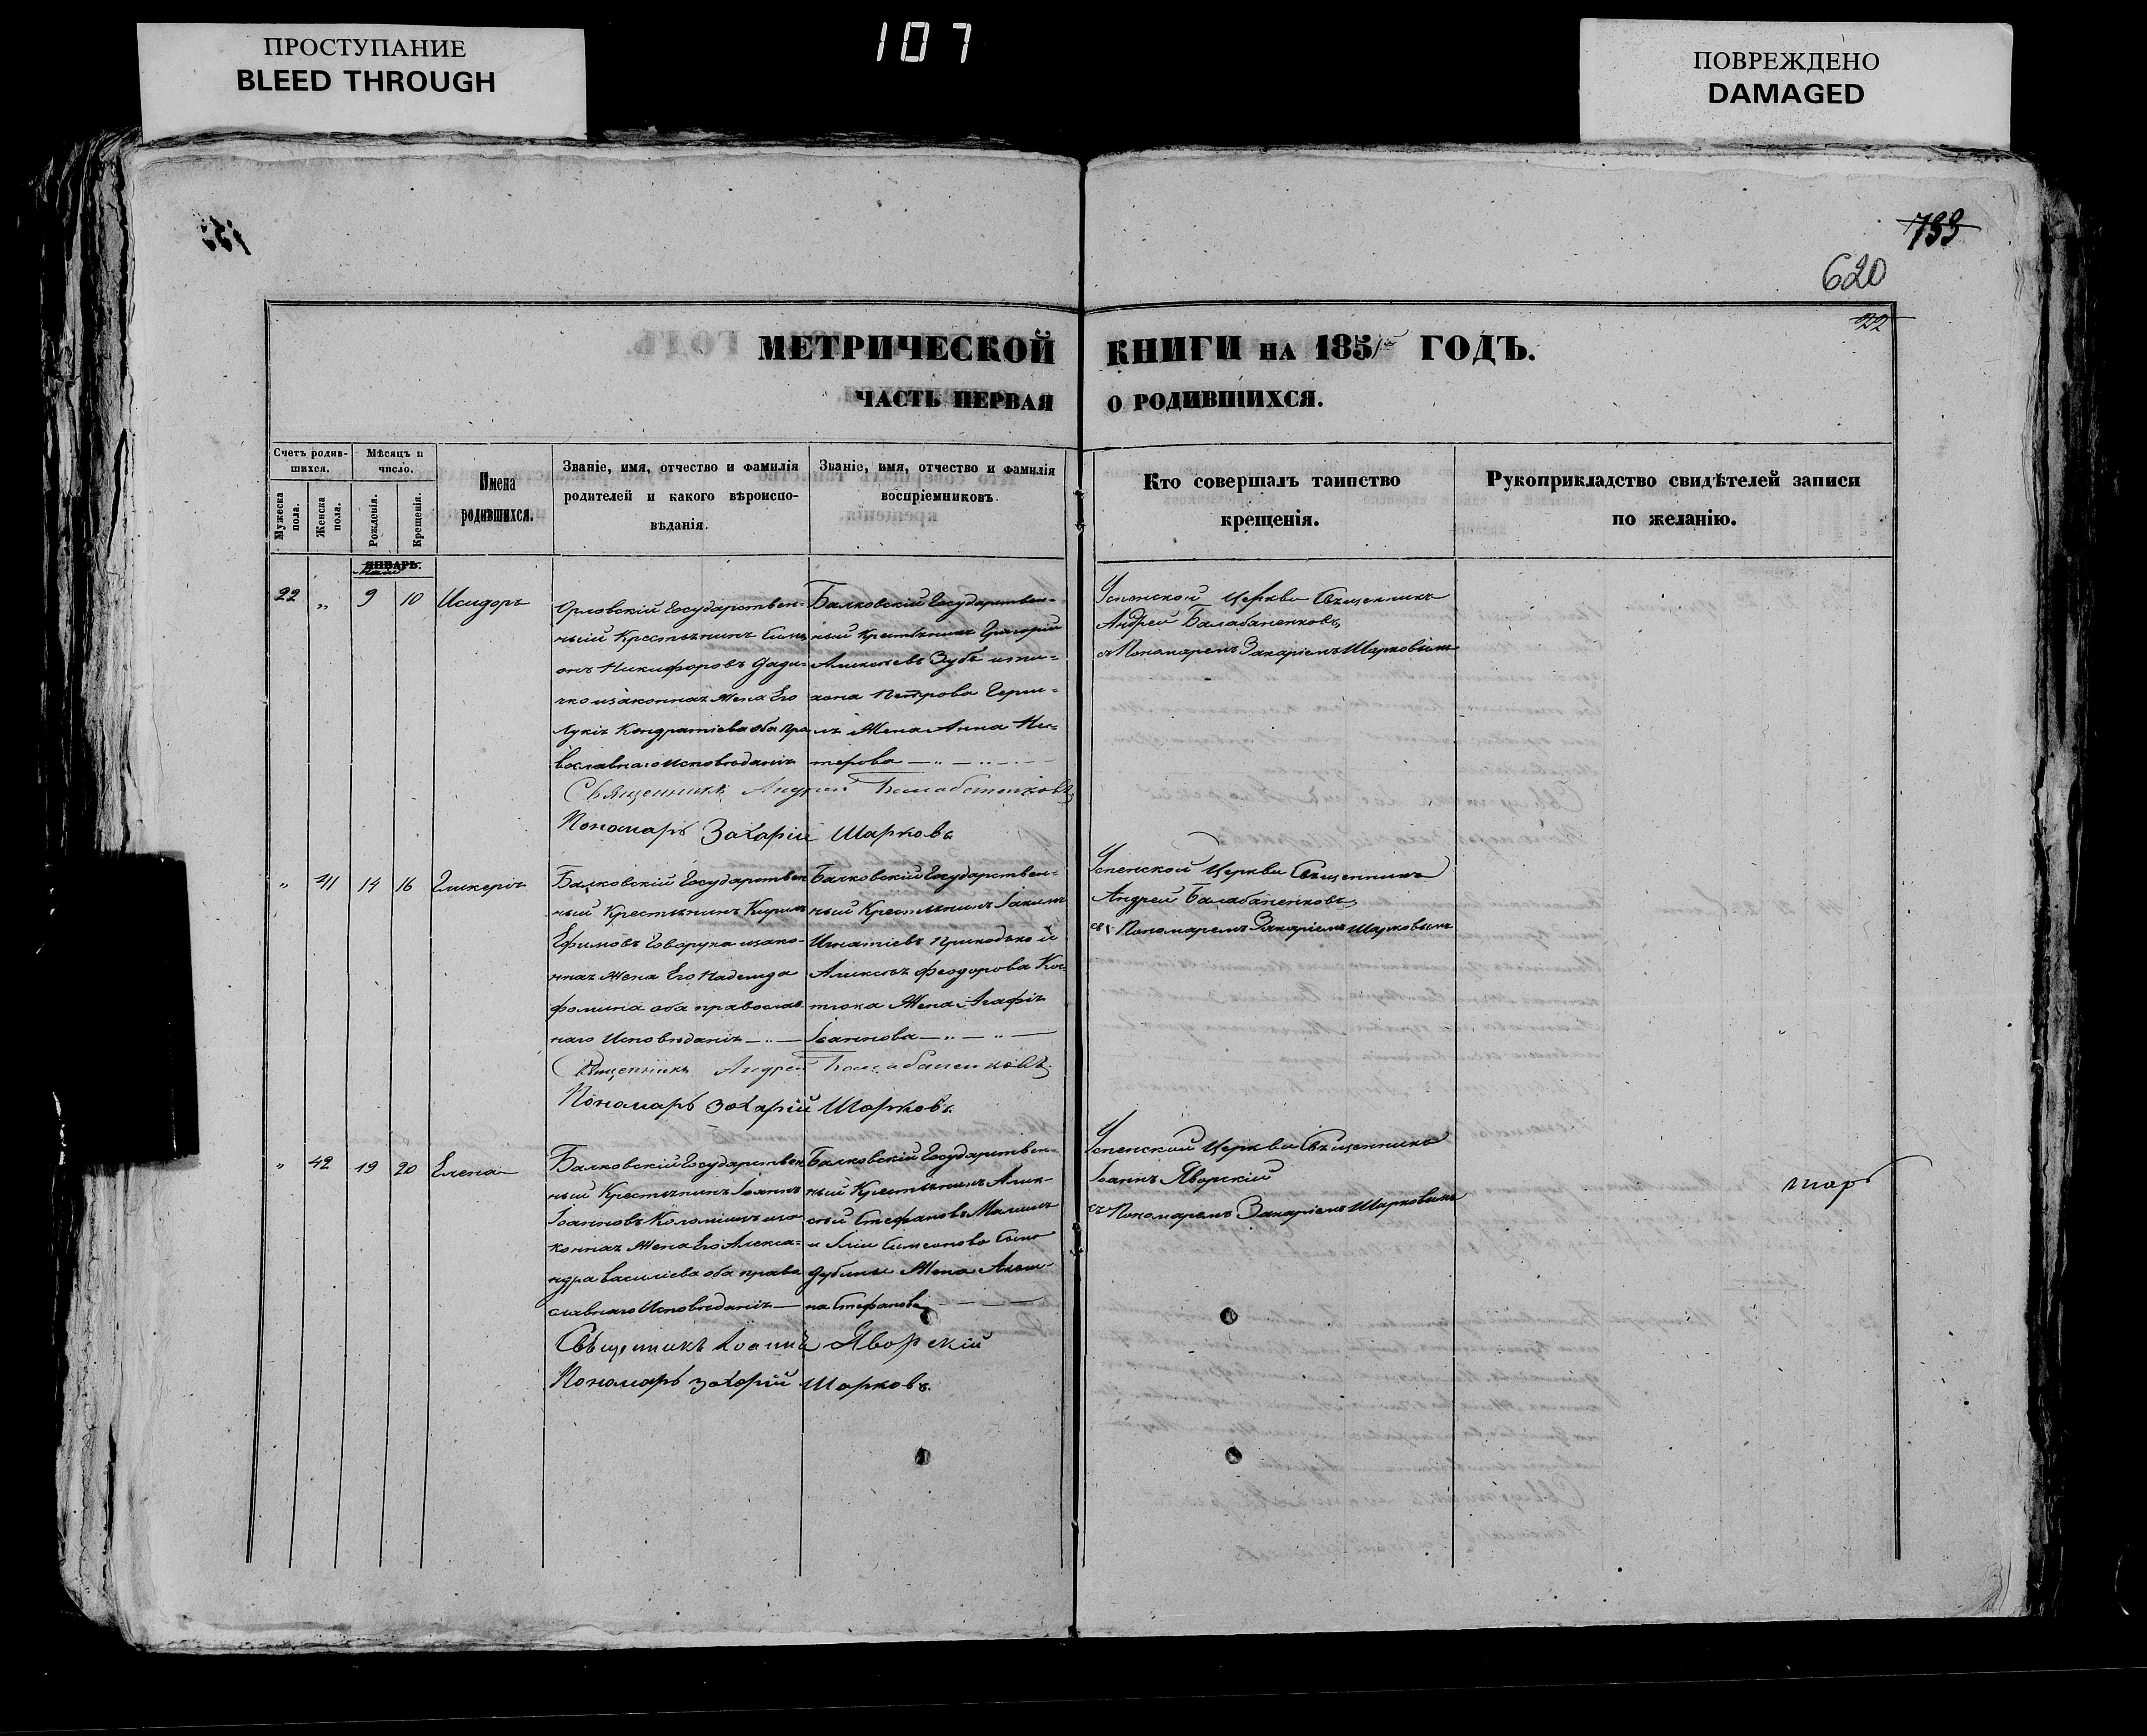 ПРОСТУПАНИЕ
BLEED THROUGH
107
ПОВРЕЖДЕНО
DAMAGED
733
620
22
МЕТРИЧЕСКОЙ КНИГИ НА 185 ГОДЪ.
ЧАСТЬ ПЕРВАЯ О РОДИВШИХСЯ.
Счетъ родив-
шихся.
Мужеска
пола.
Женска
пола.
Мѣсяцъ и
число.
Рожденія.
Крещенія.
Имена
родившихся.
Званіе, имя, отчество и фамилія
родителей и какого вѣроиспо-
вѣданія.
Званіе, имя, отчество и фамилія
воспріемниковъ.
Кто совершалъ таинство
крещенія.
Рукоприкладство свидѣтелей записи
по желанію.
ЯНВАРЬ.
22 „ 9 10 Исидоръ
Орловскій Государствен-
ный Крестьянинъ
Никифоровъ
законная Жена Его
Кондратіева оба Пра
вославнаго исповѣданія
Балковскій Государствен-
ный Крестьянинъ Григорій
Зубъ
Петрова
Жена Анна Нес-
терова
Успенской Церкви Священникъ
Андрей Балабаненковъ
съ Пономаремъ Захаріемъ Шарковымъ
Священникъ Андрей Балабаненковъ
Пономарь Захарій Шарковъ
„ 41 14 16 Гликерія
Балковскій Государствен
ный Крестьянинъ Кирилъ
Ефимовъ Говоруха изако-
нная Жена Его Надежда
Фомина оба православ
наго Исповѣданія
Балковскій Государствен-
ный Крестьянинъ Іакимъ
Игнатіевъ Приходько и
Алексѣя Феодорова Кос-
тюка Жена Агафія
Іоаннова
Успенской Церкви Священникъ
Андрей Балабаненковъ
съ Пономаремъ Захаріемъ Шарковымъ
Священникъ Андрей Балабаненковъ
Пономарь Захарій Шарковъ
„ 42 19 20 Елена
Балковскій Государствен
ный Крестьянинъ Іоаннъ
Іоанновъ Коломіецъ иза
конная Жена Его Алекса-
ндра Василіева оба право
славнаго Исповѣданія
Балковскій Государствен-
ный Крестьянинъ Алек-
сѣй Стефановъ
и Симеонова
Дубины Жена
на Стефанова
Успенской Церкви Священникъ
Іоаннъ Яворскій
съ Пономаремъ Захаріемъ Шарковымъ
Священникъ Іоаннъ Яворскій
Пономарь Захарій Шарковъ